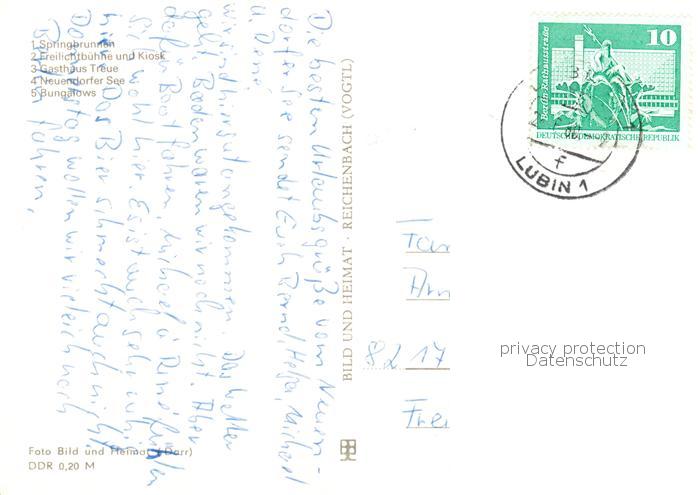 1 Springbrunnen
2 Freilichtbühne und Kiosk
3 Gasthaus Treue
4 Neuendorfer See
5 Bungalows
Die besten Urlaubsgrüße vom Neuen-
dorfer See sendet Euch Michael
u. René
wir sind hier gut angekommen. Das Wetter
geht. Baden waren wir noch nicht. Aber
dafür Boot fahren. Michael u. René fühlen
sich wohl hier. Es ist auch sehr ruhig
hier. Das Bier schmeckt auch nicht.
Donnerstag wollen wir vielleicht nach
fahren.
Foto Bild und Heimat (Darr)
DDR 0,20 M
BILD UND HEIMAT · REICHENBACH (VOGTL)
10
Berlin, Rathausstraße
DEUTSCHE DEMOKRATISCHE REPUBLIK
LUBIN 1
f
Am
8217
Frei
privacy protection
Datenschutz